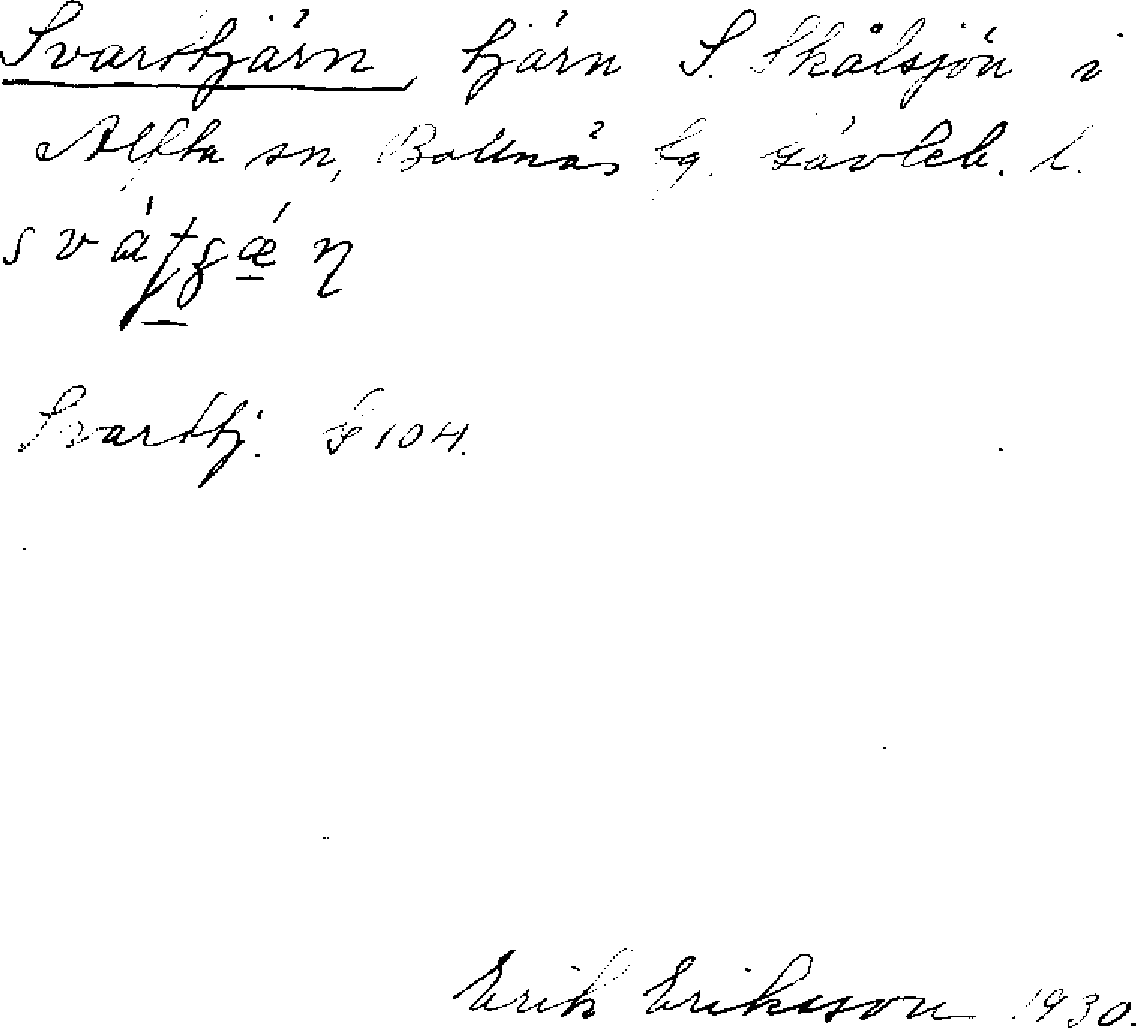 Svarttjärn, tjärn S. Skålsjön i
Alfta sn, Bollnäs tg. Gävleb. l.
Svarttj. G 104.
Erik Eriksson 1930.